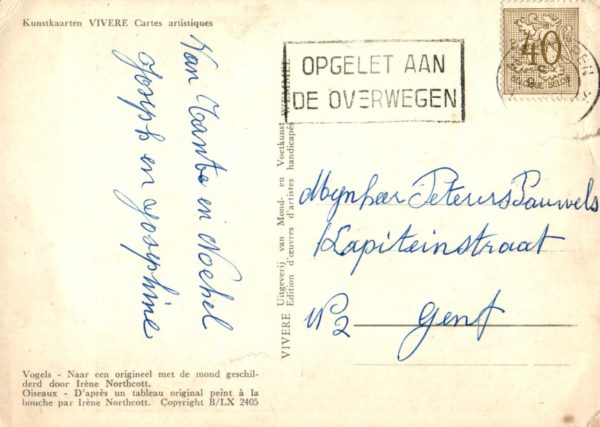 Kunstkaarten VIVERE Cartes artistiques
Van Tante en Nochel
Joseph en Josephine
Vogels - Naar een origineel met de mond geschil-
derd door Irène Northcott.
Oiseaux - D'après un tableau original peint à la
bouche par Irène Northcott. Copyright B/LX 2405
VIVERE Uitgeverij van Mond- en Voetkunst WEMMEL
Edition d'œuvres d'artistes handicapés
OPGELET AAN
DE OVERWEGEN
40
BELGIE
Mynheer Peters Pauwels
Kapiteinstraat
N° 2 Gent